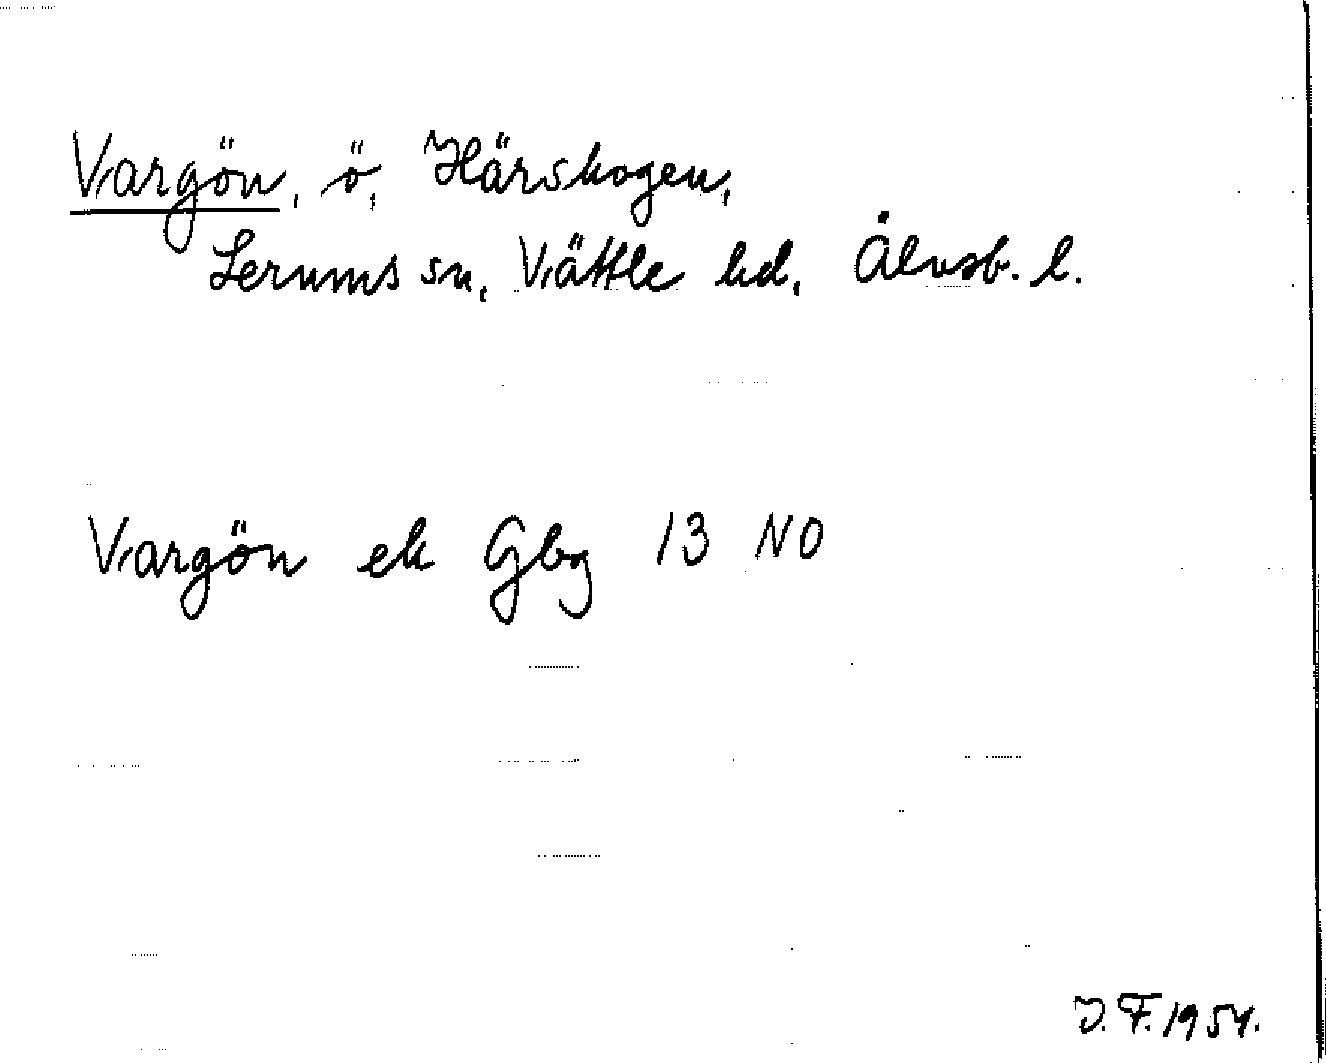 Vargön, ö, Härskogen,
Lerums sn, Vättle hd, Älvsb. l.
Vargön ek Gbg 13 NO
J. F. 1954.